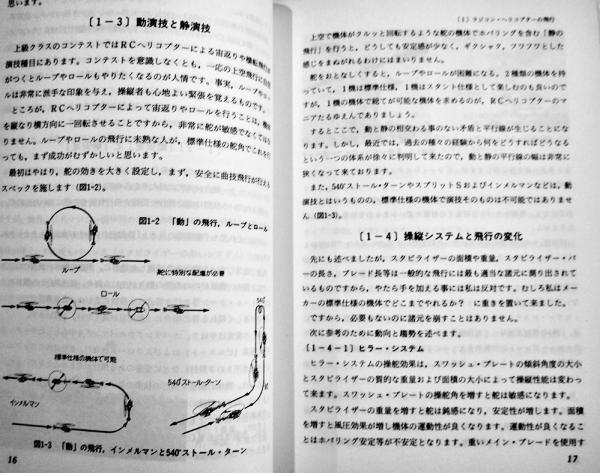 思います。
〔1-3〕動演技と静演技
上級クラスのコンテストではRCヘリコプターによる宙返りや横転飛行が
演技種目にあります。コンテストを意識しなくとも、一応の上空飛行に自信
がつくとループやロールもやりたくなるのが人情です。事実、ループやロー
ルは非常に派手な印象を与え、操縦者も心地よい緊張を覚えるものです。
ところが、RCヘリコプターによって宙返りやロールを行うことは、機体
を縦なり横方向に一回転させることですから、非常に舵が敏感でなくてはな
りません。ループやロールの飛行に未熟な人が、標準仕様の舵角でこれを行
っても、まず成功がむずかしいと思います。
最初はやはり、舵の効きを大きく設定し、まず、安全に曲技飛行が行える
スペックを施します（図1-2）。
図1-2 「動」の飛行，ループとロール
ループ
舵に特別な配慮が必要
ロール
標準仕様の機体で可能
540°
インメルマン
540°ストール・ターン
図1-3 「動」の飛行，インメルマンと540°ストール・ターン
16
〔1〕ラジコン・ヘリコプターの飛行
上空で機体がクルッと回転するような舵の機体でホバリングを含む「静の
飛行」を行うと、どうしても安定感が少なく、ギクシャク、フワフワとした
感じをまぬがれるわけにはまいりません。
舵をおとなしくすると、ループやロールが困難になる。2種類の機体を持
っていて、1機は標準仕様、1機はスタント仕様として楽しむのも良いので
すが、1機の機体で総てが可能な機体を求めるのが、RCヘリコプターのマ
ニアたるゆえんでありましょう。
するとここで、動と静の相交わる事のない矛盾と平行線が生じることにな
ります。しかし、最近では、過去の種々の経験から何をどうすればどうなる
という一つの体系が徐々に判明して来たので、動と静の平行線の幅は非常に
狭くなって来ております。
また、540°ストール・ターンやスプリットSおよびインメルマンなどは、動
演技とはいうものの、標準仕様の機体で演技そのものは不可能ではありませ
ん（図1-3）。
〔1-4〕操縦システムと飛行の変化
先にも述べましたが、スタビライザーの面積や重量、スタビライザー・バ
ーの長さ、ブレード長等は一般的な飛行には最も適当な諸元に割り出されて
いるものですから、やたら手を加える事には私は反対です。むしろ私はメー
カーの標準仕様の機体でどこまでやれるか？ に重きを置いて来ました。
ですから、必要もないのに諸元を崩すことはありません。
次に参考のために動向と趨勢を述べます。
〔1-4-1〕ヒラー・システム
ヒラー・システムの操舵効果は、スワッシュ・プレートの傾斜角度の大小
とスタビライザーの質的な重量および面積の大小によって操縦性能は変わっ
て来ます。スワッシュ・プレートの操舵角を増すと舵は敏感になります。
スタビライザーの重量を増すと舵は鈍感になり、安定性が増します。面積
を増すと風圧効果が増し機体の運動性が良くなります。運動性が良くなるこ
とはホバリング安定等が不安定となります。重いメイン・ブレードを使用す
17